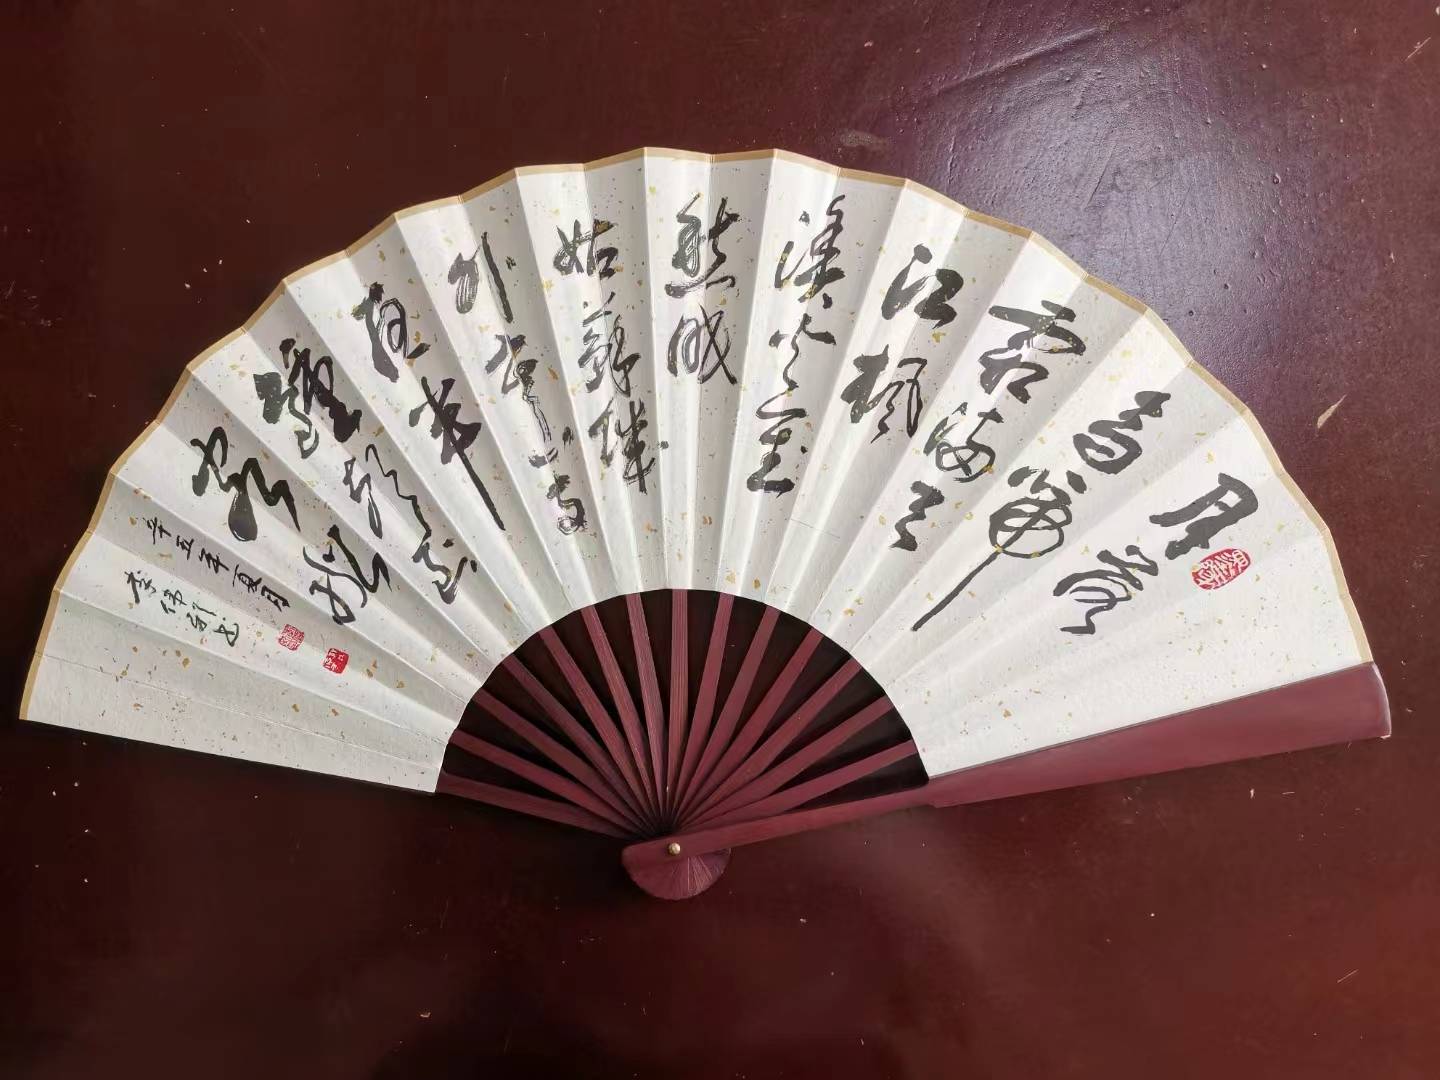 月落
烏啼
霜满天
江枫
渔火对
愁眠
姑蘇城
外寒山寺
夜半
鐘聲到
客船
辛丑年夏月
李伟书